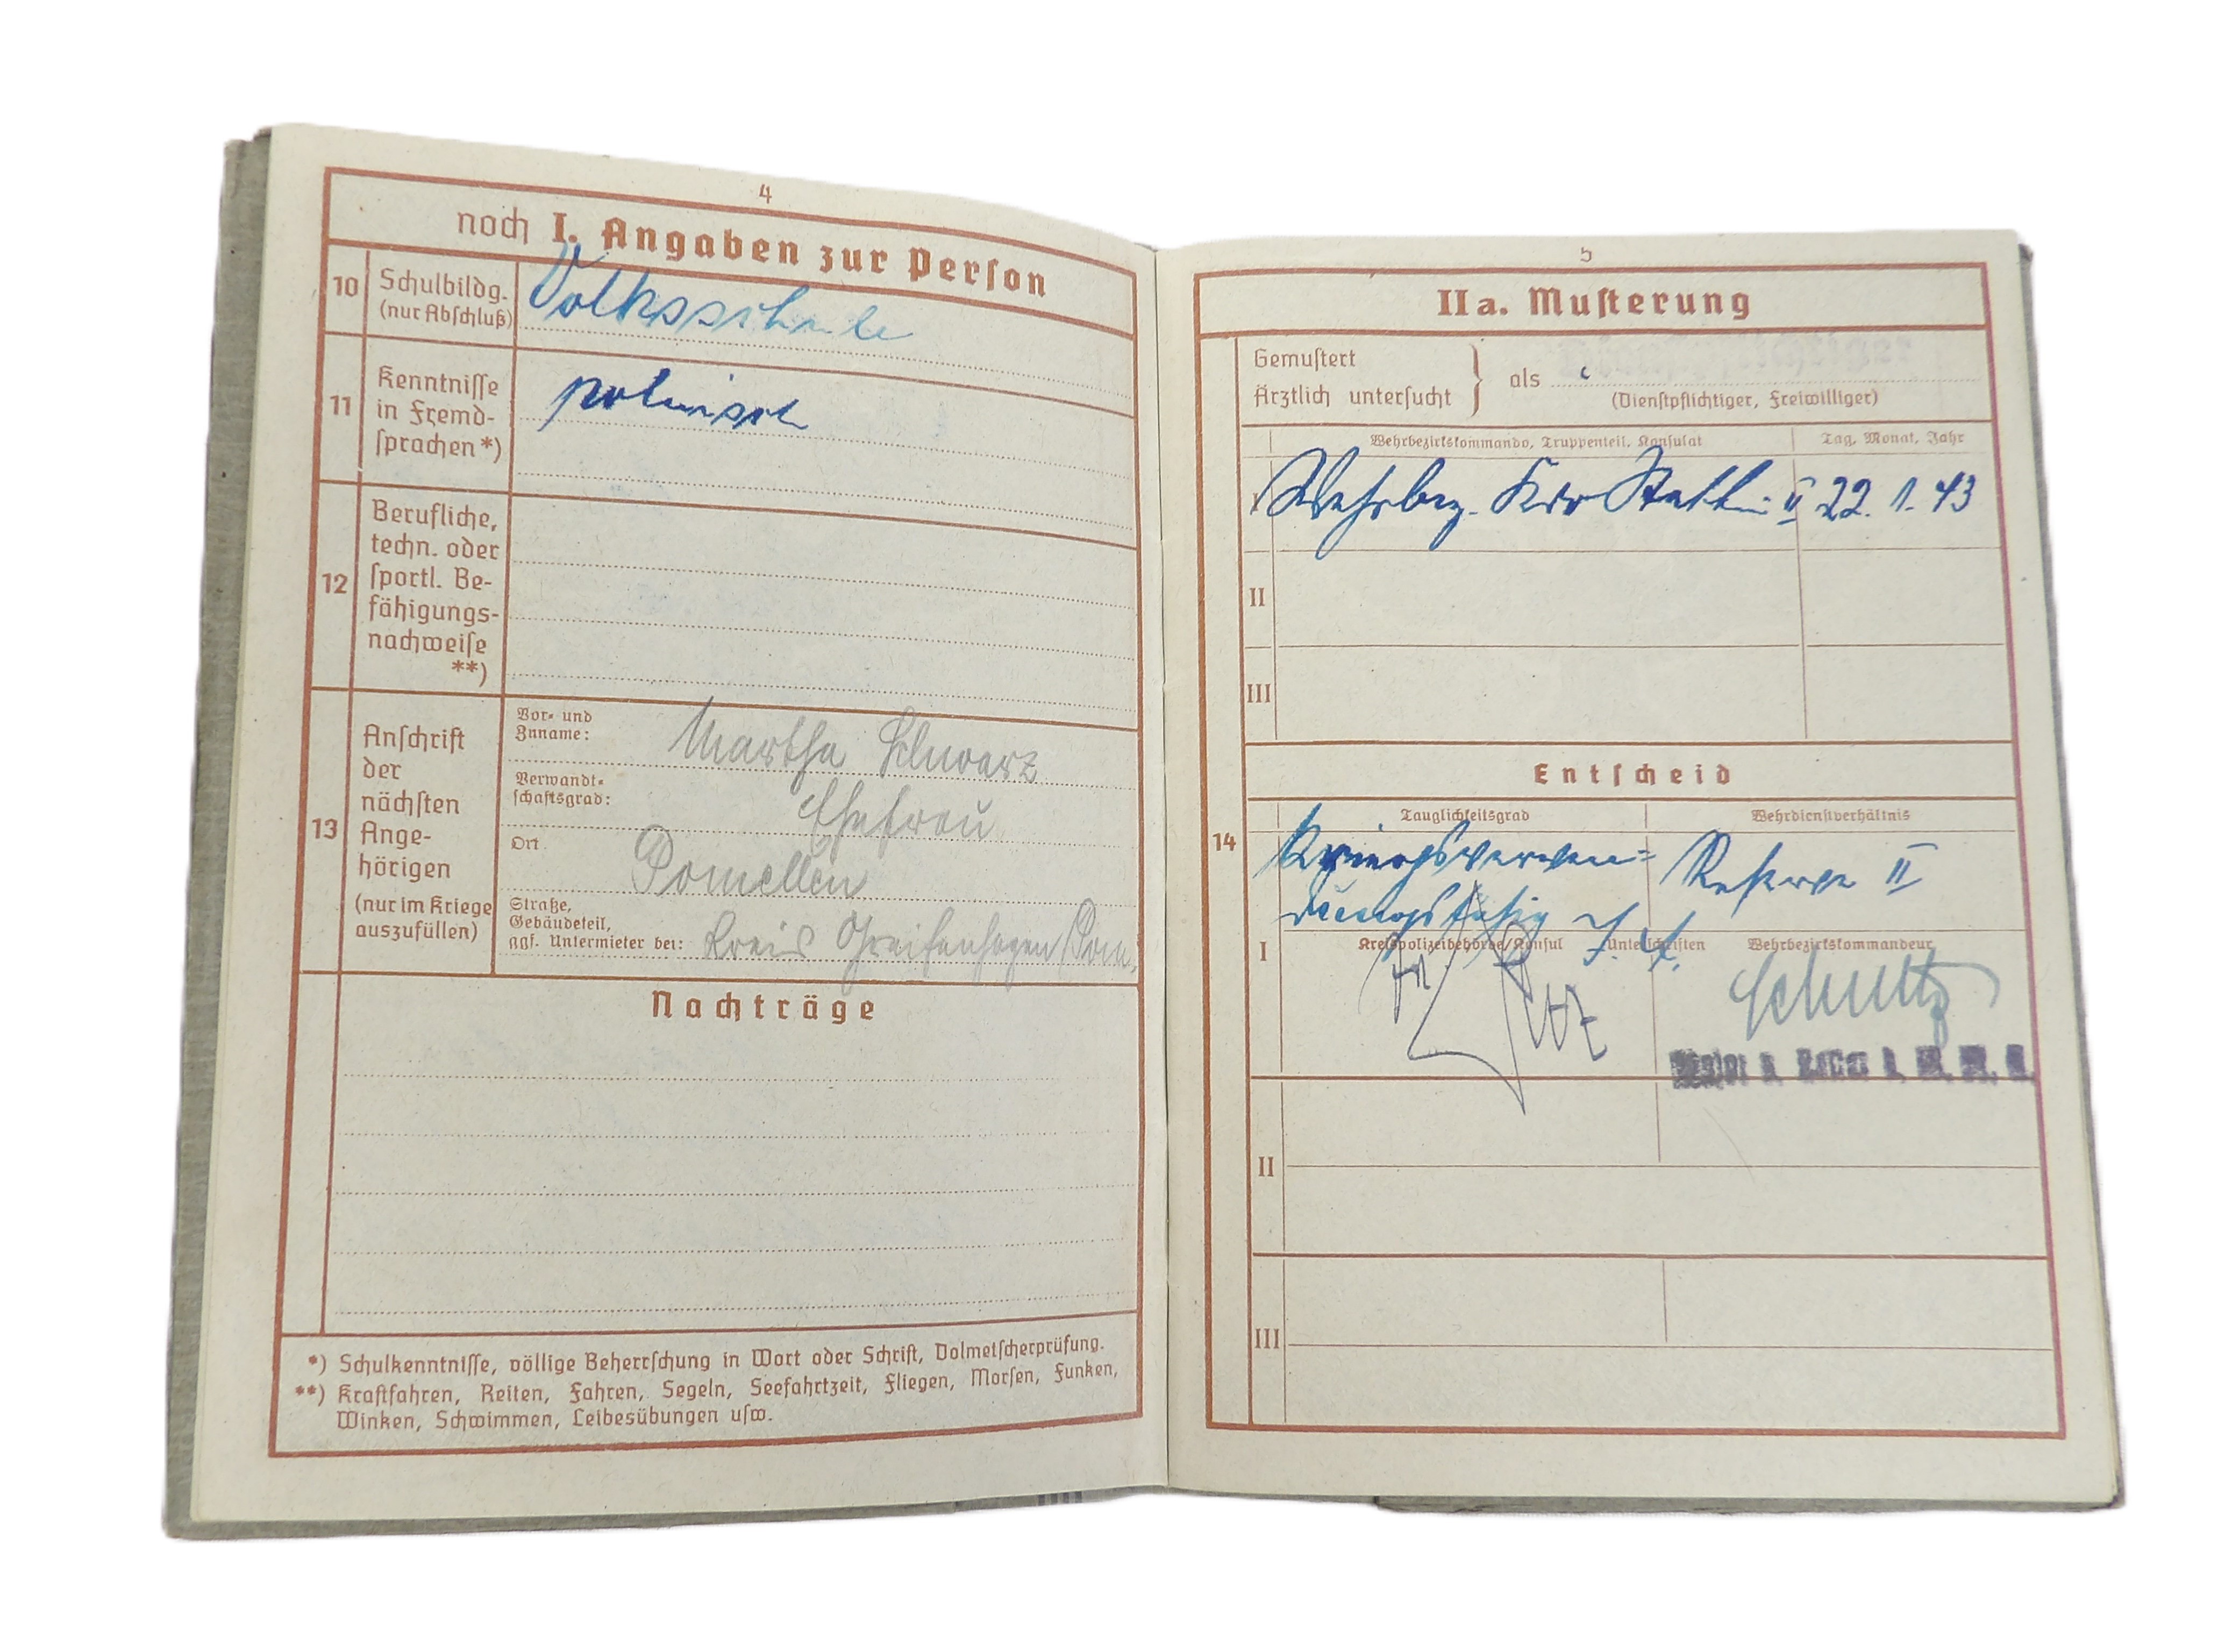 4
noch I. Angaben zur Person
10 Schulbildg. (nur Abschluß) Volksschule
11 Kenntnisse in Fremd-
sprachen *) polnisch
12 Berufliche,
techn. oder
sportl. Be-
fähigungs-
nachweise
**)
13 Anschrift
der
nächsten
Ange-
hörigen
(nur im Kriege
auszufüllen)
Vor- und
Zuname: Martha Schwarz
Verwandt-
schaftsgrad: Ehefrau
Ort: Pomellen
Straße,
Gebäudeteil,
ggf. Untermieter bei: Kreis Greifenhagen/Pom.
Nachträge
*) Schulkenntnisse, völlige Beherrschung in Wort oder Schrift, Dolmetscherprüfung.
**) Kraftfahren, Reiten, Fahren, Segeln, Seefahrtzeit, Fliegen, Morsen, Funken,
Winken, Schwimmen, Leibesübungen usw.
5
IIa. Musterung
Gemustert
Ärztlich untersucht } als
(Dienstpflichtiger, Freiwilliger)
Wehrbezirkskommando, Truppenteil, Konsulat Tag, Monat, Jahr
Wehrbez. Kdo Stettin II 22. 1. 43
II
III
Entscheid
14
Tauglichkeitsgrad Wehrdienstverhältnis
I Kriegsverwen- Reserve II
dungsfähig
Kreispolizeibehörde/Konsul Unterschriften Wehrbezirkskommandeur
Schultz
II
III